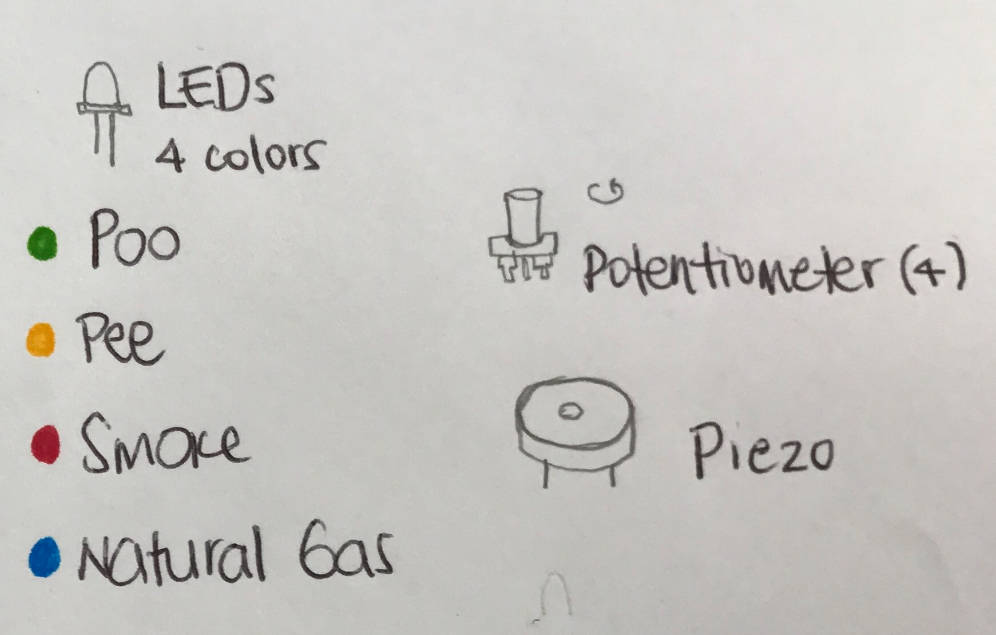 LEDs
4 colors
Poo
Pee
Smoke
Natural Gas
Potentiometer (4)
Piezo